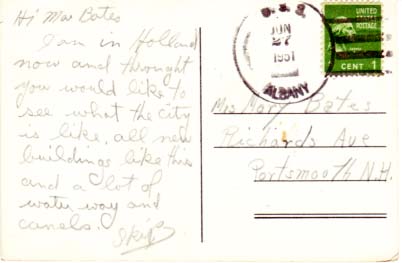 Hi Mrs Bates
I am in Holland
now and throught
you would like to
see what the city
is like, all new
buildings like this
and a lot of
water way and
canels.
Skip
U.S.S.
JUN
27
1951
ALBANY
UNITED
STATES
POSTAGE
CENT 1
Mrs Mary Bates
Richards Ave
Portsmooth N.H.